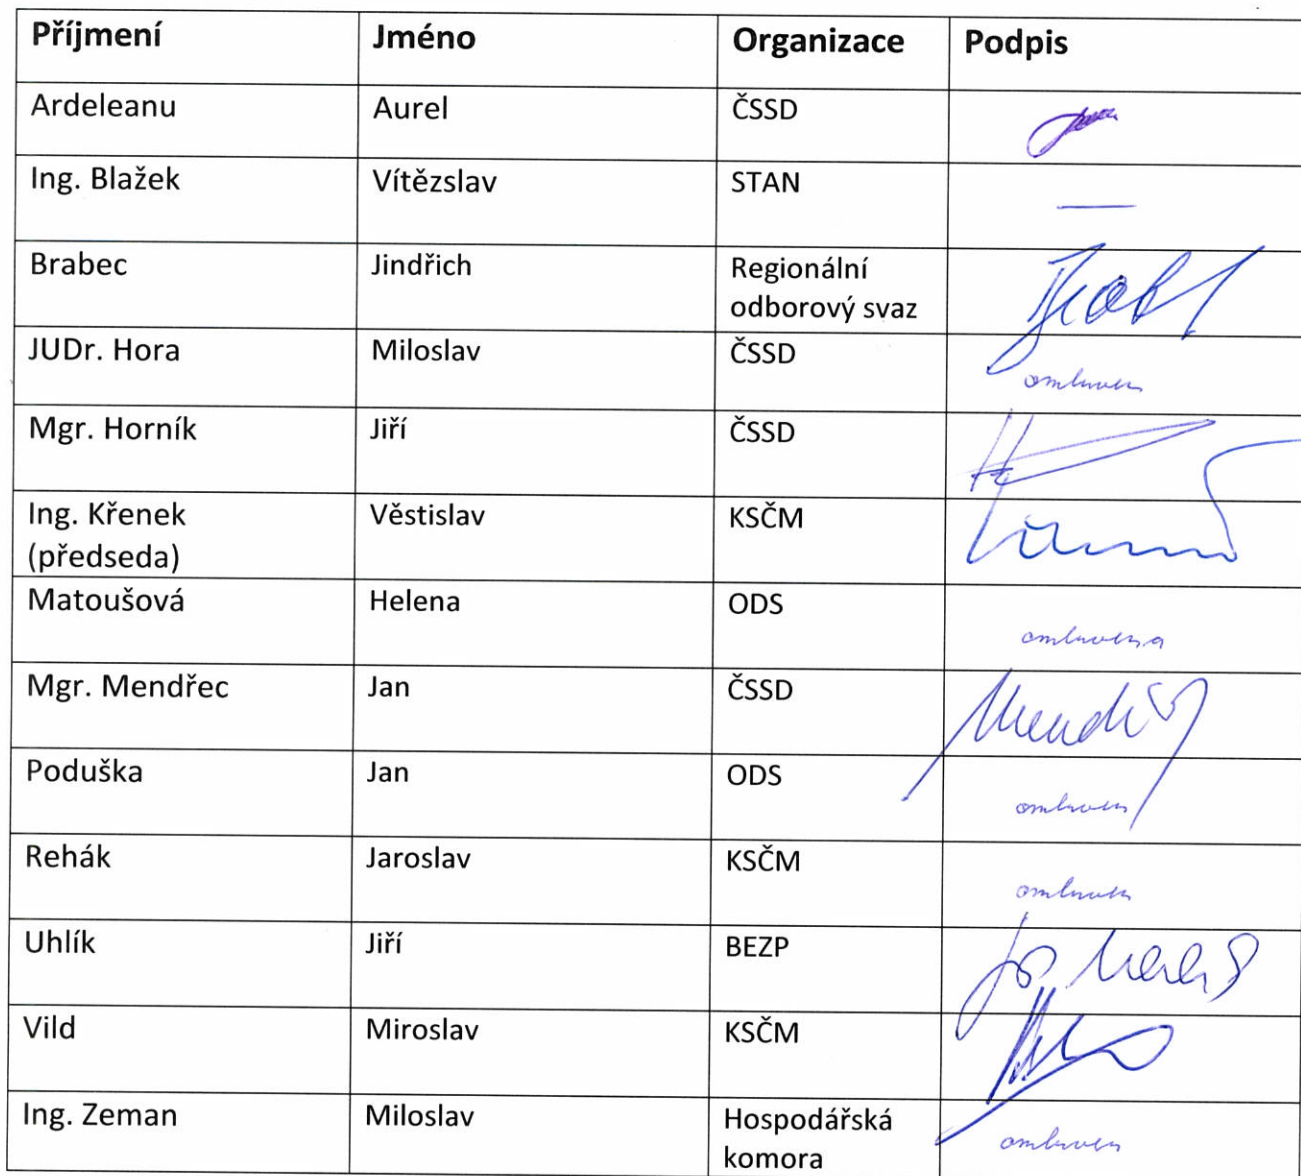 Příjmení Jméno Organizace Podpis
Ardeleanu Aurel ČSSD
Ing. Blažek Vítězslav STAN —
Brabec Jindřich Regionální
odborový svaz
JUDr. Hora Miloslav ČSSD omluven
Mgr. Horník Jiří ČSSD
Ing. Křenek Věstislav KSČM
(předseda)
Matoušová Helena ODS omluvena
Mgr. Mendřec Jan ČSSD
Poduška Jan ODS omluven
Rehák Jaroslav KSČM omluven
Uhlík Jiří BEZP
Vild Miroslav KSČM
Ing. Zeman Miloslav Hospodářská omluven
komora